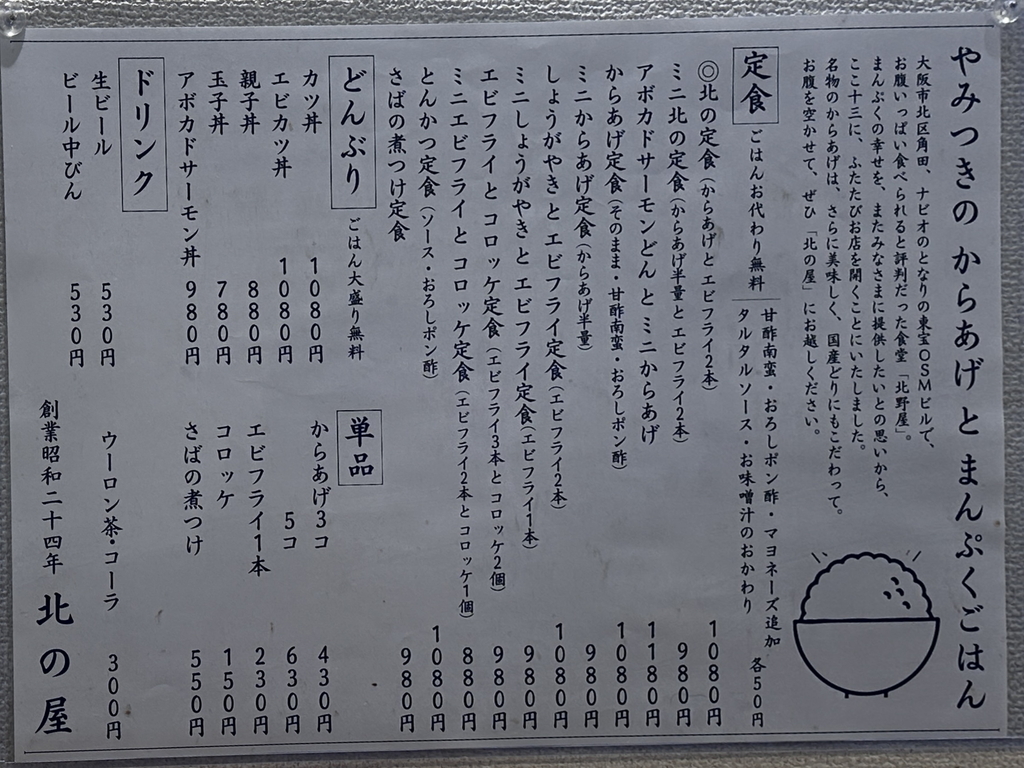 やみつきのからあげとまんぷくごはん
大阪市北区角田、ナビオのとなりの東宝OSMビルで、
お腹いっぱい食べられると評判だった食堂「北野屋」。
まんぷくの幸せを、またみなさまに提供したいとの思いから、
ここ十三に、ふたたびお店を開くことにいたしました。
名物のからあげは、さらに美味しく、国産どりにもこだわって。
お腹を空かせて、ぜひ「北の屋」にお越しください。
定食 ごはんお代わり無料
甘酢南蛮・おろしポン酢・マヨネーズ追加
タルタルソース・お味噌汁のおかわり 各50円
◎北の定食(からあげとエビフライ2本) 1080円
ミニ北の定食(からあげ半量とエビフライ2本) 980円
アボカドサーモンどんとミニからあげ 1180円
からあげ定食(そのまま・甘酢南蛮・おろしポン酢) 1080円
ミニからあげ定食(からあげ半量) 980円
しょうがやきとエビフライ定食(エビフライ2本) 1080円
ミニしょうがやきとエビフライ定食(エビフライ1本) 980円
エビフライとコロッケ定食(エビフライ3本とコロッケ2個) 980円
ミニエビフライとコロッケ定食(エビフライ2本とコロッケ1個) 880円
とんかつ定食(ソース・おろしポン酢) 1080円
さばの煮つけ定食 980円
どんぶり ごはん大盛り無料
カツ丼 1080円
エビカツ丼 1080円
親子丼 880円
玉子丼 780円
アボカドサーモン丼 980円
単品
からあげ3コ 430円
5コ 630円
エビフライ1本 230円
コロッケ 150円
さばの煮つけ 550円
ドリンク
生ビール 530円
ビール中びん 530円
ウーロン茶・コーラ 300円
創業昭和二十四年 北の屋